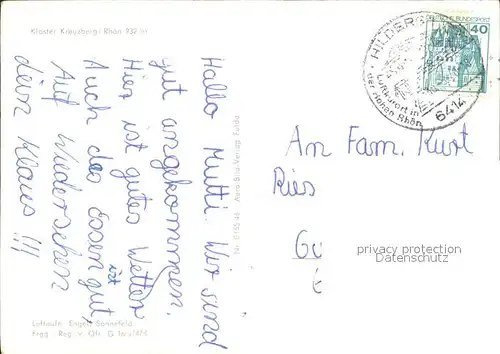 Kloster Kreuzberg / Rhön 932 m
Hallo Mutti. Wir sind
gut angekommen.
Hier ist gutes Wetter
Auch das Essen ist gut,
Auf Wiedersehen
dein Klaus !!!
Luftaufn. Engel, Sannefeld
Freg. Reg. v. Ofr. G
Verlag Fulda
DEUTSCHE BUNDESPOST
40
HILDERS
Luftkurort in
der Hohen Rhön
6414
An Fam. Kurt
Ries
privacy protection
Datenschutz